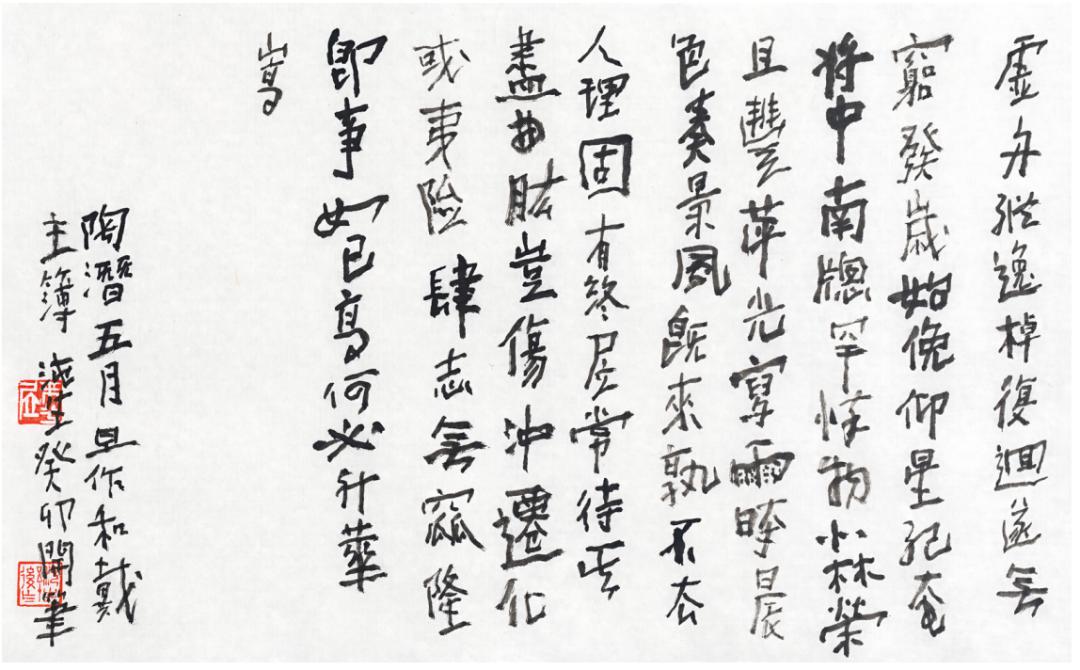 虛舟縱逸棹復迴遂無
窮發歲始俛仰星紀奄
將中南牕罕悴物北林榮
且豐萍光寫雨時晨
色奏景風既來孰不去
人理固有終居常待其
盡曲肱豈傷沖遷化
或夷險肆志無窊隆
即事如已高何必升華
嵩
陶潛五月旦作和戴
主簿 癸卯開筆